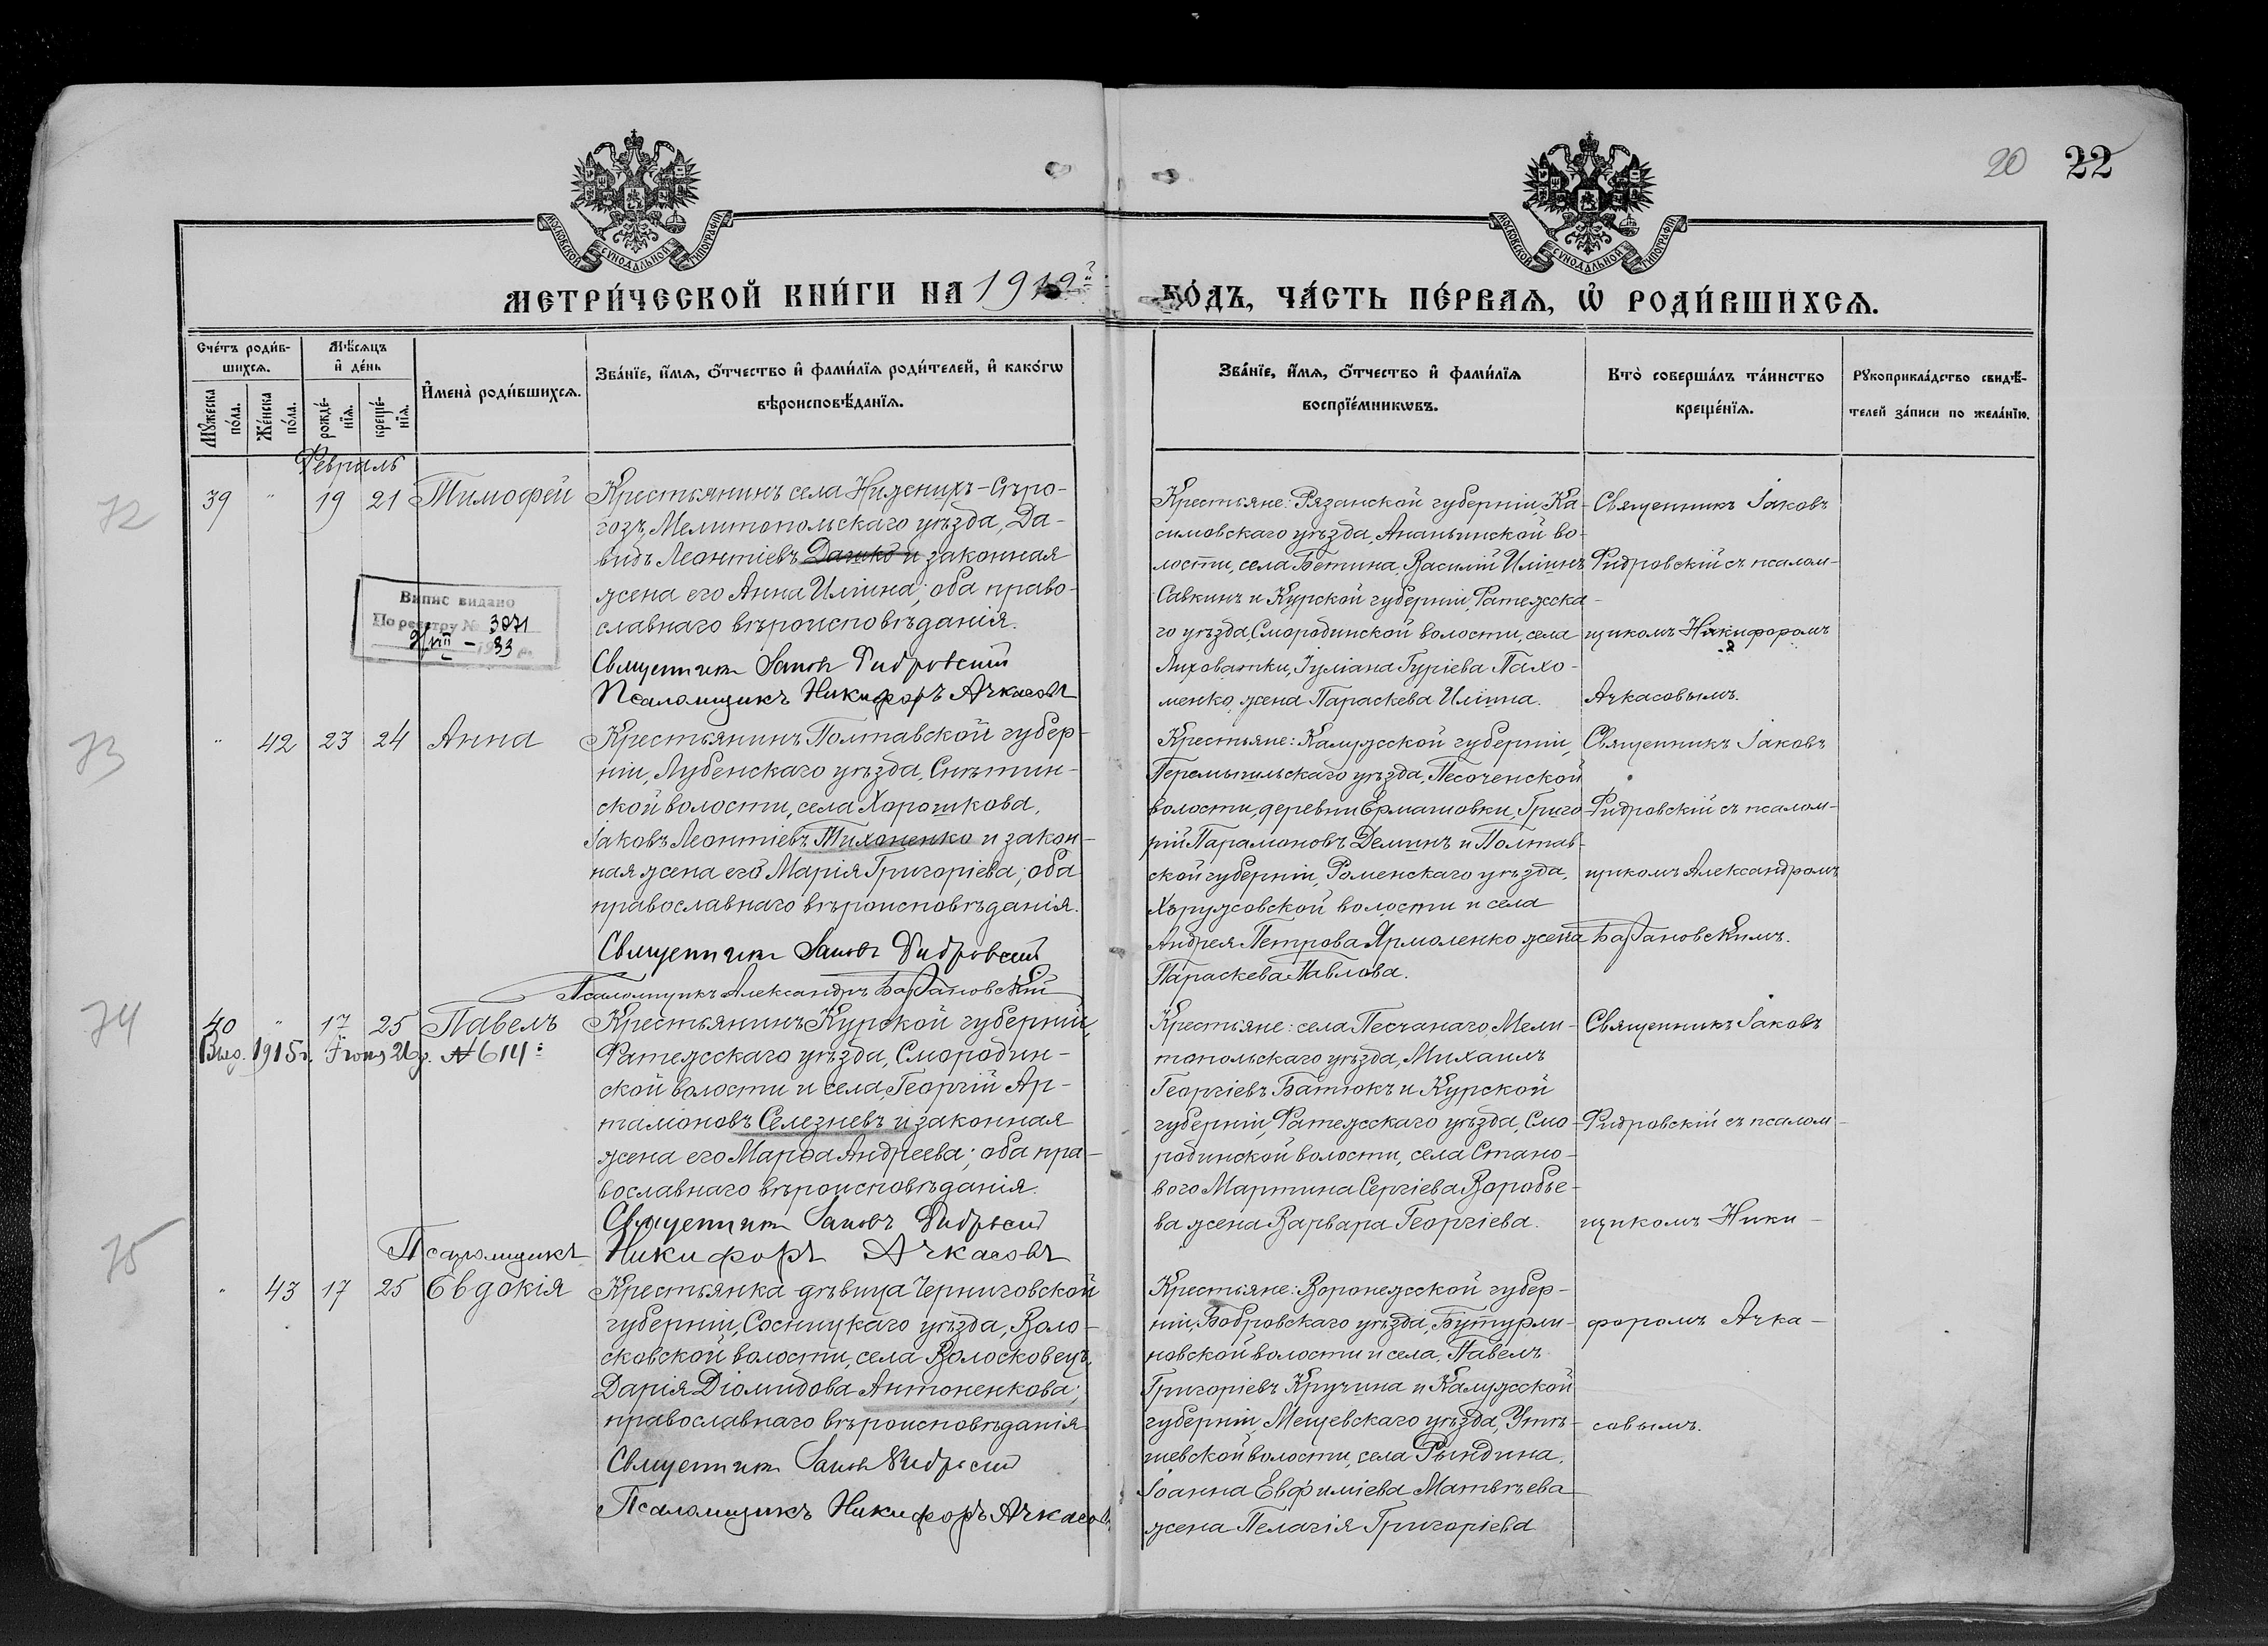 20 22
МОСКОВСКОЙ СѴНОДАЛЬНОЙ ТИПОГРАФІИ
МОСКОВСКОЙ СѴНОДАЛЬНОЙ ТИПОГРАФІИ
МЕТРИ́ЧЕСКОЙ КНИ́ГИ НА 1912
ГО́ДЪ, ЧА́СТЬ ПЕ́РВАѦ, Ѡ҆ РОДИ́ВШИХСѦ.
Сче́тъ роди́в-
шихсѧ.
Мꙋжеска
по́ла.
Же́нска
по́ла.
Мѣ́сѧцъ
и҆ де́нь
рожде́-
нїѧ.
креще́-
нїѧ.
И҆мена̀ роди́вшихсѧ.
Зва́нїе, и҆́мѧ, ѻ҆́тчество и҆ фами́лїѧ роди́телей, и҆ како́гѡ
вѣроисповѣ́данїѧ.
Зва́нїе, и҆́мѧ, ѻ҆́тчество и҆ фами́лїѧ
воспрїе́мникѡвъ.
Кто̀ соверша́лъ та́инство
креще́нїѧ.
Рꙋкоприкла́дство свидѣ́-
телей за́писи по жела́нїю.
Февраль
72
39 " 19 21 Тимофей
Крестьянинъ села Нижнихъ-Сѣро-
гозъ, Мелитопольскаго уѣзда, Да-
видъ Леонтіевъ Дашко и законная
жена его Анна Иліина; оба право-
славнаго вѣроисповѣданія.
Священникъ Іаковъ Фидровскій
Псаломщикъ Никифоръ Ачкасовъ
Випис видано
По реєстру № 3071
VIII – 1933 р.
Крестьяне: Рязанской губерніи, Ка-
симовскаго уѣзда, Ананьинской во-
лости, села Бетина, Василій Иліинъ
Савкинъ и Курской губерніи, Фатежска-
го уѣзда, Смородинской волости, села
Лиховатки, Іуліана Гуріева Пахо-
менко, жена Параскева Иліина.
Священникъ Іаковъ
Фидровскій съ псалом-
щикомъ Никифоромъ
Ачкасовымъ.
73
" 42 23 24 Анна
Крестьянинъ Полтавской губер-
ніи, Лубенскаго уѣзда, Снѣтин-
ской волости, села Хорошкова,
Іаковъ Леонтіевъ Тихоненко и закон-
ная жена его Марія Григоріева; оба
православнаго вѣроисповѣданія.
Священникъ Іаковъ Фидровскій
Псаломщикъ Александръ Барановскій
Крестьяне: Калужской губерніи,
Перемышльскаго уѣзда, Песоченской
волости, деревни Ермашовки, Григо-
рій Парамоновъ Деминъ и Полтав-
ской губерніи, Роменскаго уѣзда,
Хоружовской волости и села
Андрея Петрова Ярмоленко жена
Параскева Павлова.
Священникъ Іаковъ
Фидровскій съ псалом-
щикомъ Александромъ
Барановскимъ.
74
40 " 17 25 Павелъ
Выд. 1915 г. № 614:
Крестьянинъ Курской губерніи,
Фатежскаго уѣзда, Смородин-
ской волости и села, Георгій Ар-
тамоновъ Селезневъ и законная
жена его Марѳа Андреева; оба пра-
вославнаго вѣроисповѣданія.
Священникъ Іаковъ Фидровскій
Псаломщикъ Никифоръ Ачкасовъ
Крестьяне: села Песчанаго, Мели-
топольскаго уѣзда, Михаилъ
Георгіевъ Батюкъ и Курской
губерніи, Фатежскаго уѣзда, Смо-
родинской волости, села Стано-
вого Мартина Сергіева Воробье-
ва жена Варвара Георгіева.
Священникъ Іаковъ
Фидровскій съ псалом-
щикомъ Ники-
форомъ Ачка-
совымъ.
75
" 43 17 25 Евдокія
Крестьянка дѣвица Черниговской
губерніи, Сосницкаго уѣзда, Воло-
сковской волости, села Волосковецъ,
Дарія Діомидова Антоненкова;
православнаго вѣроисповѣданія.
Священникъ Іаковъ Фидровскій
Псаломщикъ Никифоръ Ачкасовъ
Крестьяне: Воронежской губер-
ніи, Бобровскаго уѣзда, Бутурли-
новской волости и села, Павелъ
Григоріевъ Кручина и Калужской
губерніи, Мещевскаго уѣзда, Утѣ-
шевской волости, села Рындина,
Іоанна Евфиміева Матвѣева
жена Пелагія Григоріева